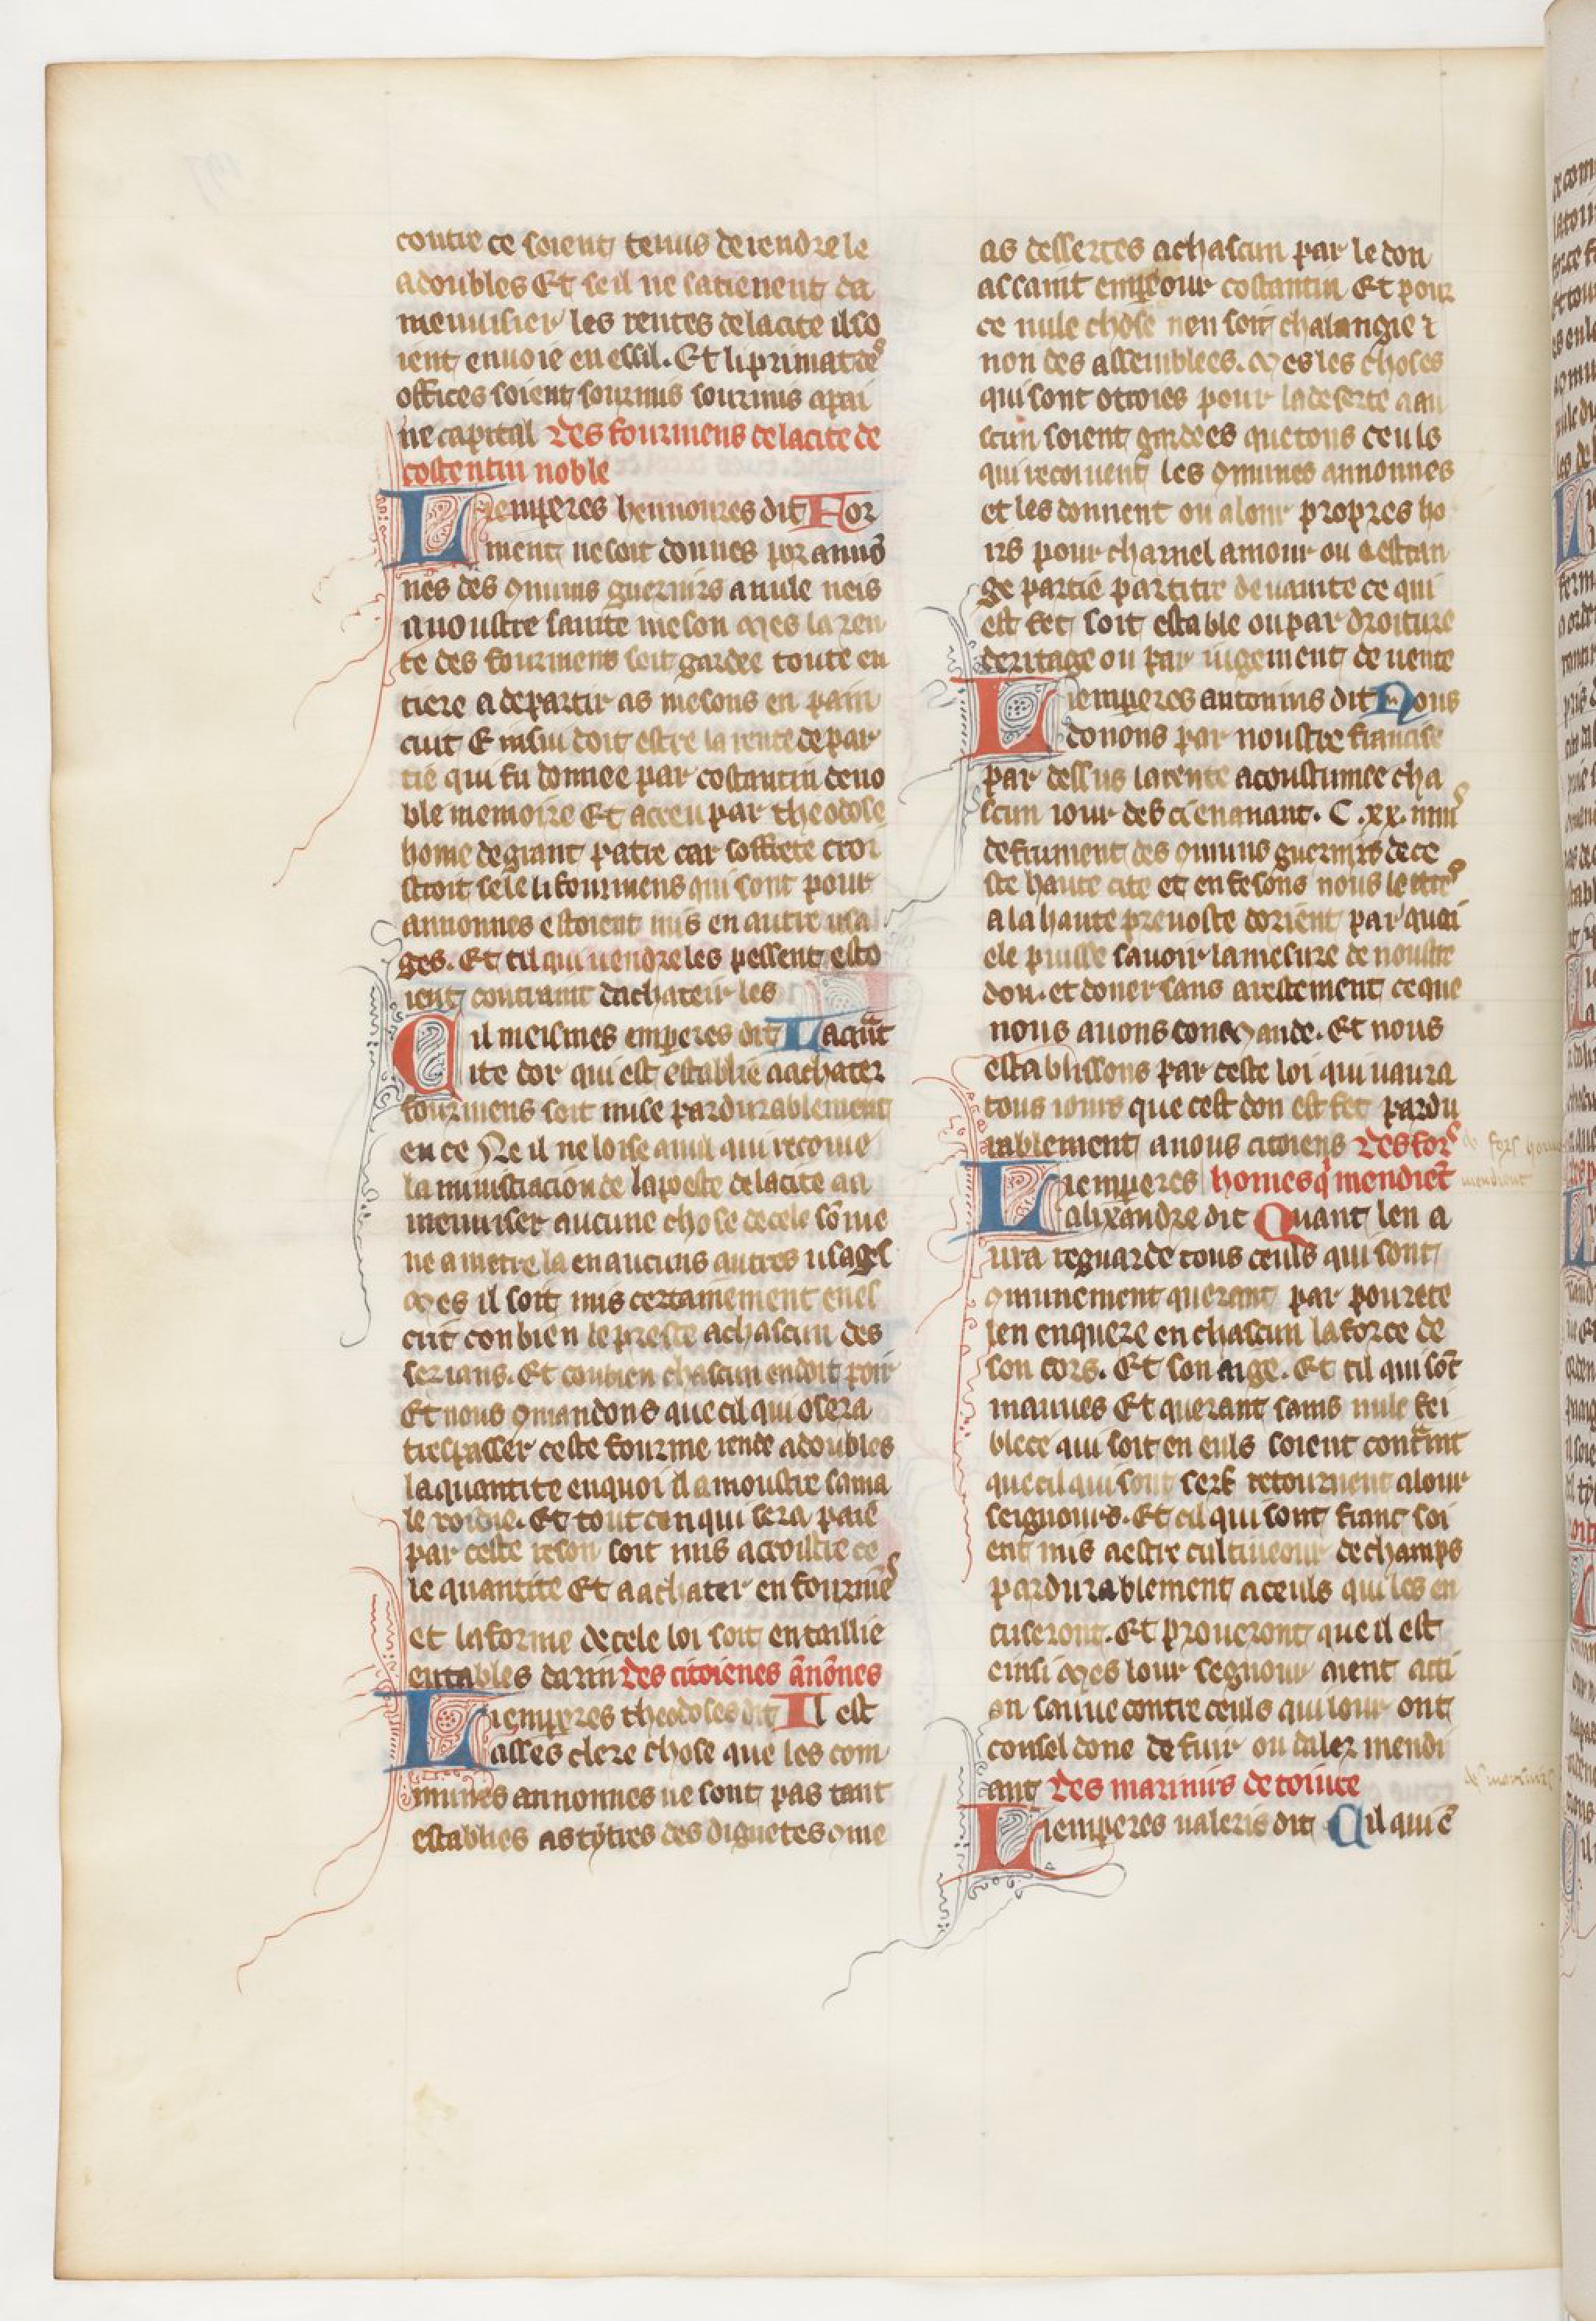 contre ce soient tenus de rendre le
a doubles Et se il ne satienent da
menuisier les rentes de la cite il so
ient enuoie en essil. Et li primat des
offices soient sourmis sourmis a pai
ne capital Des fourmens de la cite de
costentin noble
Li emperes hennoures dit For
ment ne soit donnes por anno
nes des 9muns guerniers a nule neis
a noustre sainte meson Mes la ren
te des fourmens soit gardee toute en
tiere a departir as mesons en pain
cuit E insui doit estre la rente depar
tie qui fu donnee par costantin de no
ble memoire Et acreu par theodose
home de grant patre car soffrete croi
stroit se le li fourmens qui sont pour
annonnes estoient mis en autre usa
ges. Et cil qui vendre les pessent esto
ient contraint dachateir les
Cil meismes emperes dit La quãt
ite dor qui est establie a achater
fourmens soit mise pardurablement
en ce Ne il ne loise a nul qui recoiue
la ministracion de la poeste de la cite a a
menuiser aucune chose de cele sõme
ne a metre la en aucuns autres usages
Mes il soit mis certainement en es
crit conbien le preste a chascun des
serians. Et conbien chascun en doit poir
Et nous 9mandons que cil qui osera
trespasser ceste fourme rende a doubles
la quantite en quoi il a moustre sa ma
le voidie. Et tout cen qui sera paie
par ceste reson soit mis acroistre ce
le quantite Et a achater en fourmẽs
et la forme de cele loi soit entaillie
en tables darin Des citoienes ãnones
Li emperes theodoses dit Il est
asses clere chose que les com
munes annonnes ne sont pas tant
establies as tytres des diguetes 9me
as dessertes a chascun par le don
as saint empeour costantin Et pour
ce nule chose nen soit chalangie ⁊
non des assemblees. Mes les choses
qui sont otroies pour la deserte a au
scun soient gardees que tous ceuls
qui recoiuent les 9munes annonnes
et les donnent ou a lour propres ho
irs pour charnel amour ou a estran
ge partie par titre de uante ce qui
est fet soit estable ou par droiture
deritage ou par iugement de uente
Li emperes antonins dit Nous
donons par noustre francise
par dessus la rente acoustumee cha
scun iour des ci en auant. C .xx. miis
de frument des 9muns guerniers de ce
ste haute cite et en fesons nous lettres
a la haute preuoste dorient par quoi
ele puisse sauoir la mesure de noustre
don. et doner sans arestement ce que
nous auons conmande. Et nous
establissons par ceste loi qui uaura
tous iours que cest don est fet pardu
rablement a nous citoiens Des fors
Li emperes homes q mendiẽt
alixandre dit Quant len a
ura reguarde tous ceuls qui sont
9munement querant par pourete
len enquere en chascun la force de
son cors. Et son aige. Et cil qui sõt
mauues Et querant sains nule fei
blece qui soit en euls soient contraint
que cil qui sont serf retournent a lour
seignours. Et cil qui sont franc soi
ent mis a estre cultiueour de champs
pardurablement a ceuls qui les en
cuseront. Et proueront que il est
einsi Mes lour segnour aient acti
on sauue contre ceuls qui lour ont
consel done de fuir ou daler mendi
ant Des mariniers de toiure
Li emperes ualeris dit Cil qui ẽ
de fors homes
mendient
des mariniers